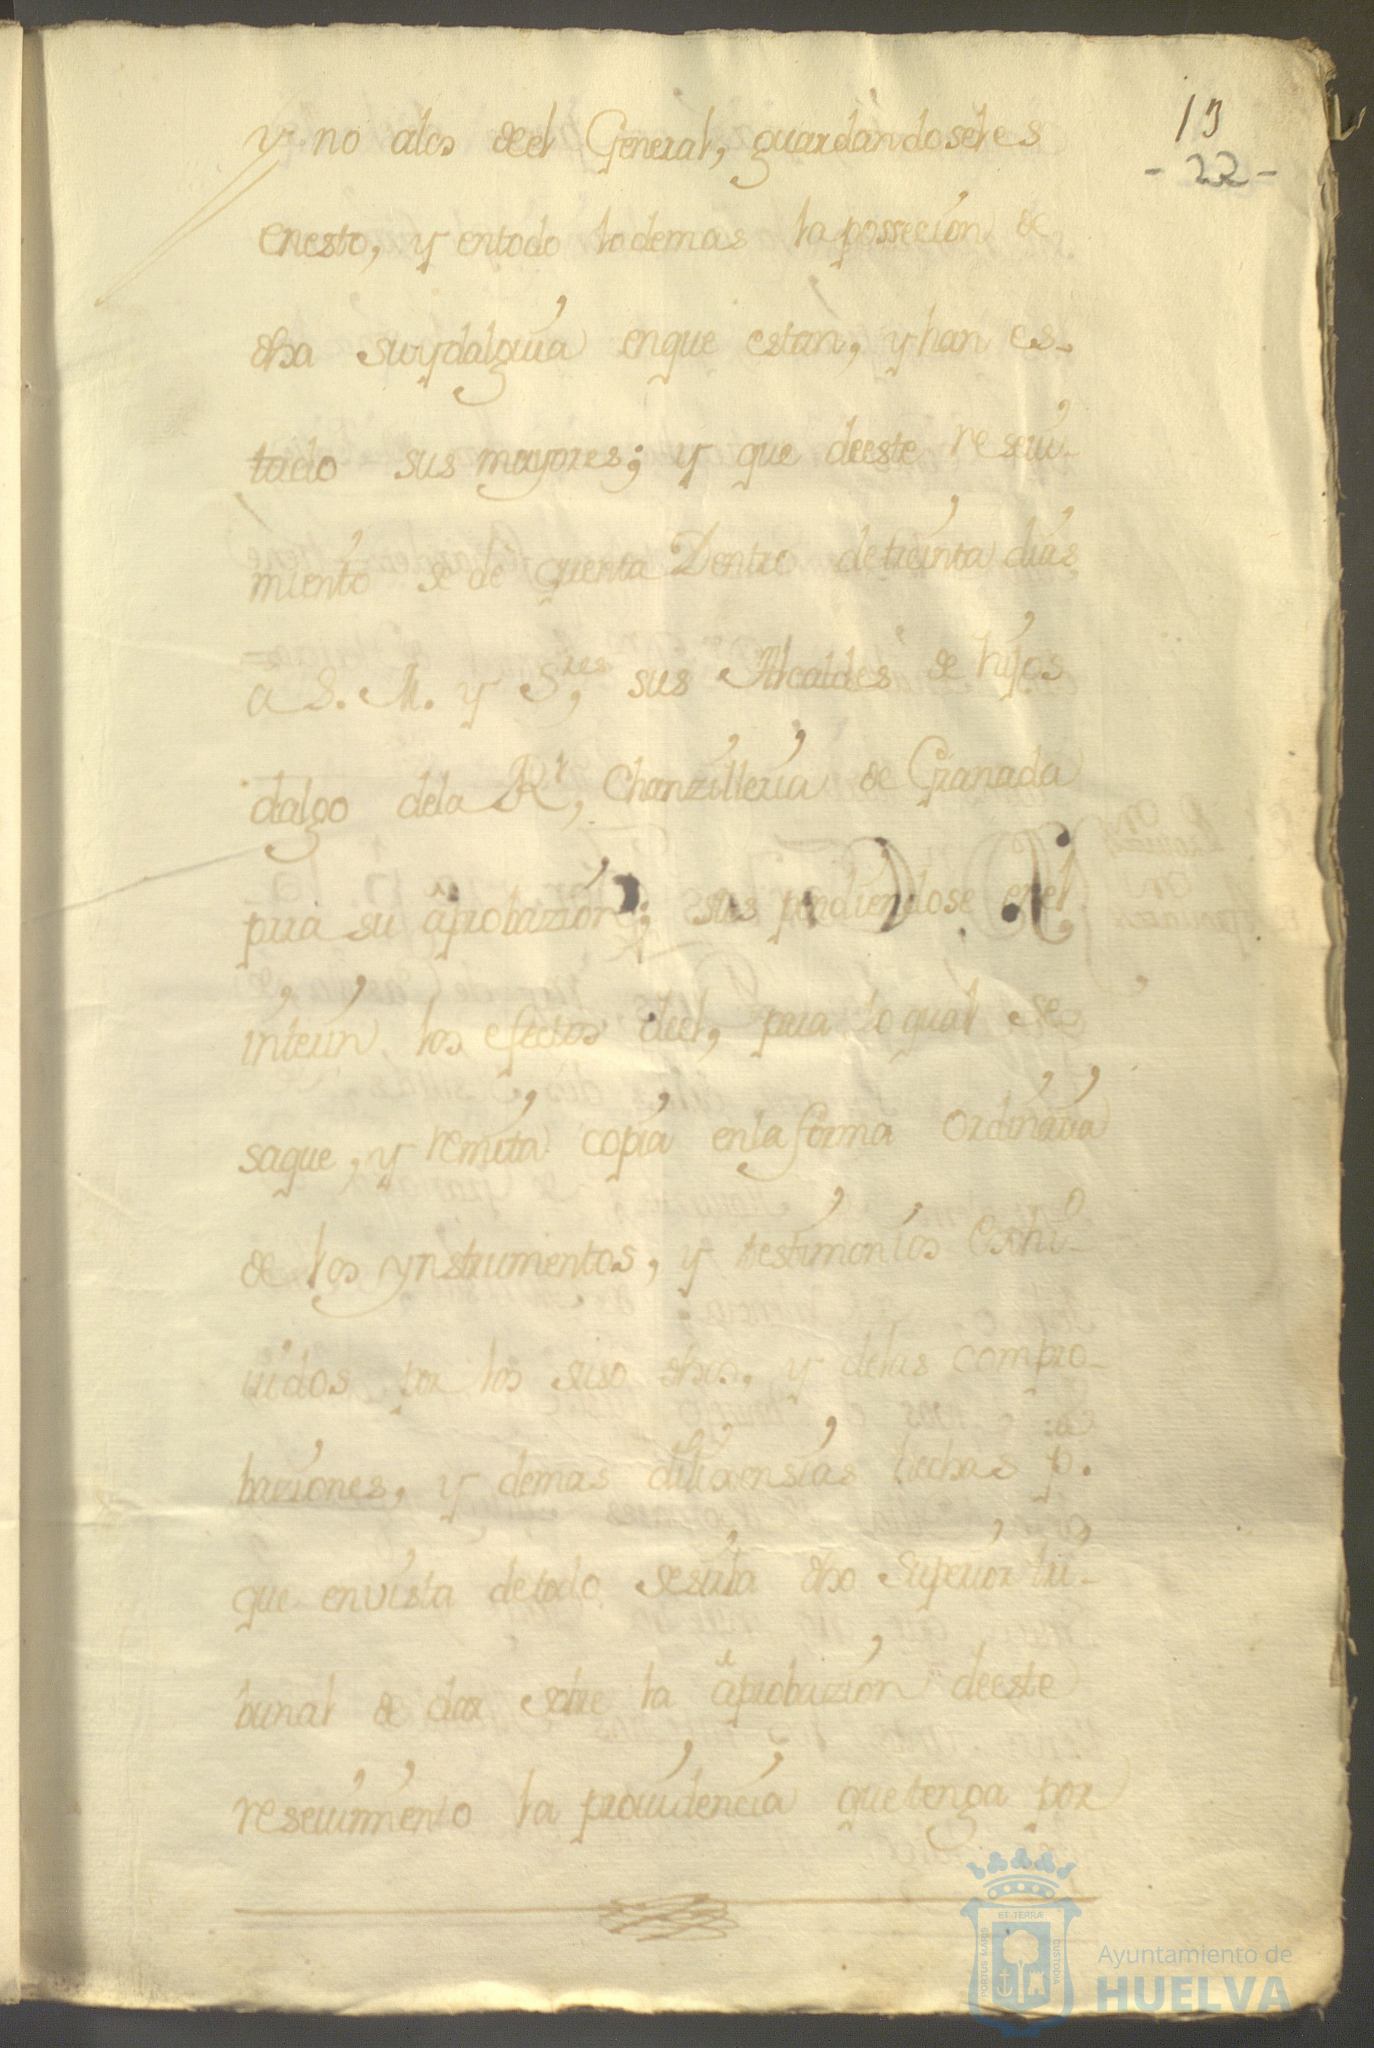 13
- 22 -
y no alos deel General, guardandoseles
enesto, y entodo lodemas la possecion de
dha suydalguia enque estan, y han es-
tado sus mayores; y que deeste reseui-
miento se dè quenta Dentro detreinta dias
a S. M. y S,res sus Alcaldes de hijos
dalgo dela Rl, Chanzilleria de Granada
para su aprobazion; suspendiendose enel
interin los efectos deel, para lo qual se
saque, y remita copia enla forma ordinaria
de los ynstrumentos, y testimonios Exhi-
uidos por los suso dhos, y delas compro-
baziones, y demas dilixensias hechas p.a
que envista detodo sesirba dho Superior tri-
bunal de dar sobre la aprobazion deeste
reseuimiento la prouidencia quetenga por
ET TERRÆ
PORTUS MARIS
CUSTODIA
Ayuntamiento de
HUELVA